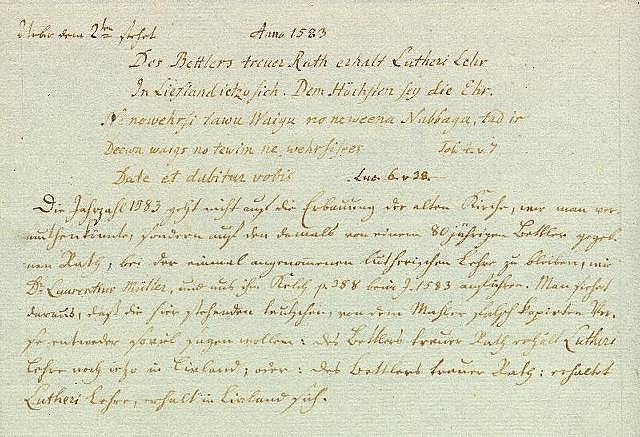 Ueber dem 2ten stehet Anno 1583
Des Bettlers treuer Rath erhalt Lutheri Lehr
In Liefland ietzo sich. Dem Höchsten sey die Ehr.
Ne nowehrsi tawu Waigu no neweena Nabbaga, tad ir
Deewa waigs no tewim ne wehrsisees Tob. 4. v. 7
Date et dabitur vobis Luc. 6. v 38.
Die Jahrzahl 1583 geht nicht auf die Erbauung der alten Kirche, wie man ver-
muthen könte, sondern auf den damals von einem 80 jährigen Bettler gegeb-
nen Rath, bei der einmal angenomenen lutherischen Lehre zu bleiben, wie
Dr Laurentius Müller, und aus ihm Kelch p. 388 beim J. 1583 anführen. Man siehet
daraus, daß die hier stehenden teutschen, von dem Mahler falsch kopirten Ver-
se entweder so viel sagen wollen: des Bettlers treuer Rath erhält Lutheri
Lehre noch izo in Livland; oder: des Bettlers treuer Rath: erhaltet
Lutheri Lehre, erhält in Livland sich.